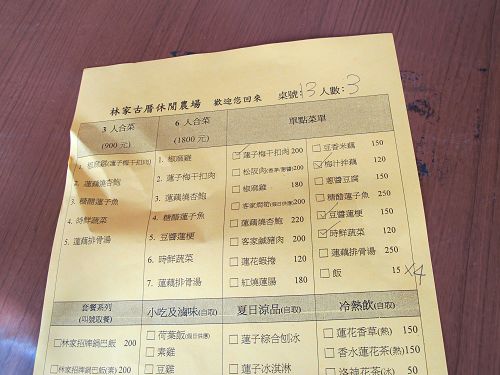 林家古厝休閒農場 歡迎您回來 桌號:13 人數:3
3 人合菜
(900 元)
2. 蓮藕燒杏鮑
3. 糖醋蓮子魚
4. 時鮮蔬菜
5. 蓮藕排骨湯
6 人合菜
(1800 元)
1. 椒麻雞
2. 蓮子梅干扣肉
3. 蓮藕燒杏鮑
4. 糖醋蓮子魚
5. 豆醬蓮梗
6. 時鮮蔬菜
7. 蓮藕排骨湯
單點菜單
☑蓮子梅干扣肉 200
□松阪肉 200
□椒麻雞 180
□客家燜筍(假日供應) 200
□蓮藕燒杏鮑 220
□客家鹹豬肉 200
□蓮花蝦捲 120
□紅燒蓮腸 180
□豆香米藕 150
☑梅汁沖藕 120
□蔥醬豆腐 150
□糖醋蓮子魚 250
☑豆醬蓮梗 150
☑時鮮蔬菜 120
□蓮藕排骨湯 250
□飯 15 ×4
套餐系列
(叫號取餐)
□林家招牌鍋巴飯 200
□林家招牌鍋巴飯(素) 200
小吃及滷味(自取)
□荷葉飯(假日供應)
□素雞
□豆雞
夏日涼品(自取)
□蓮子綜合刨冰
□蓮子冰淇淋
冷熱飲(自取)
□蓮花香草(熱) 150
□香水蓮花茶(熱) 150
□洛神花茶(冰) 50